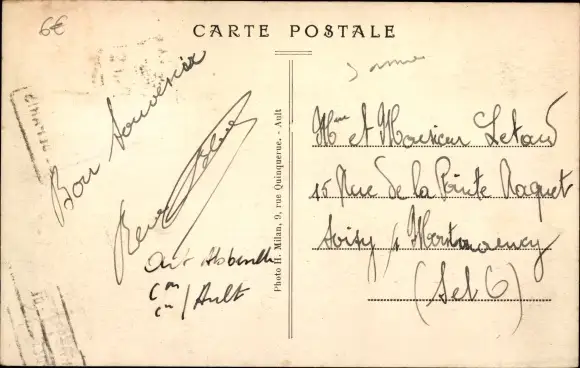 6€
CARTE POSTALE
Somme
Bon souvenir
René
Ault
Photo H. Milan, 9, rue Quinquerue. - Ault
Mme et Monsieur Letard
15 Rue de la Pointe Raquet
Soisy s/ Montmorency
(Set O)